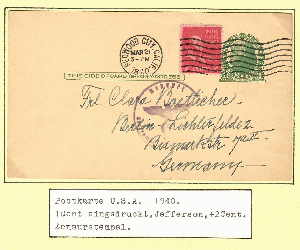 REDWOOD CITY, CALIF.
MAR 21
3 - PM
1940
THIS SIDE OF CARD IS FOR ADDRESS
Frl. Clara Boettcher
Berlin-Lichterfelde 2
Bismarckstr.
Germany
Postkarte U.S.A. 1940.
1Cent eingedruckt,Jefferson,+2Cent.
Zensurstempel.